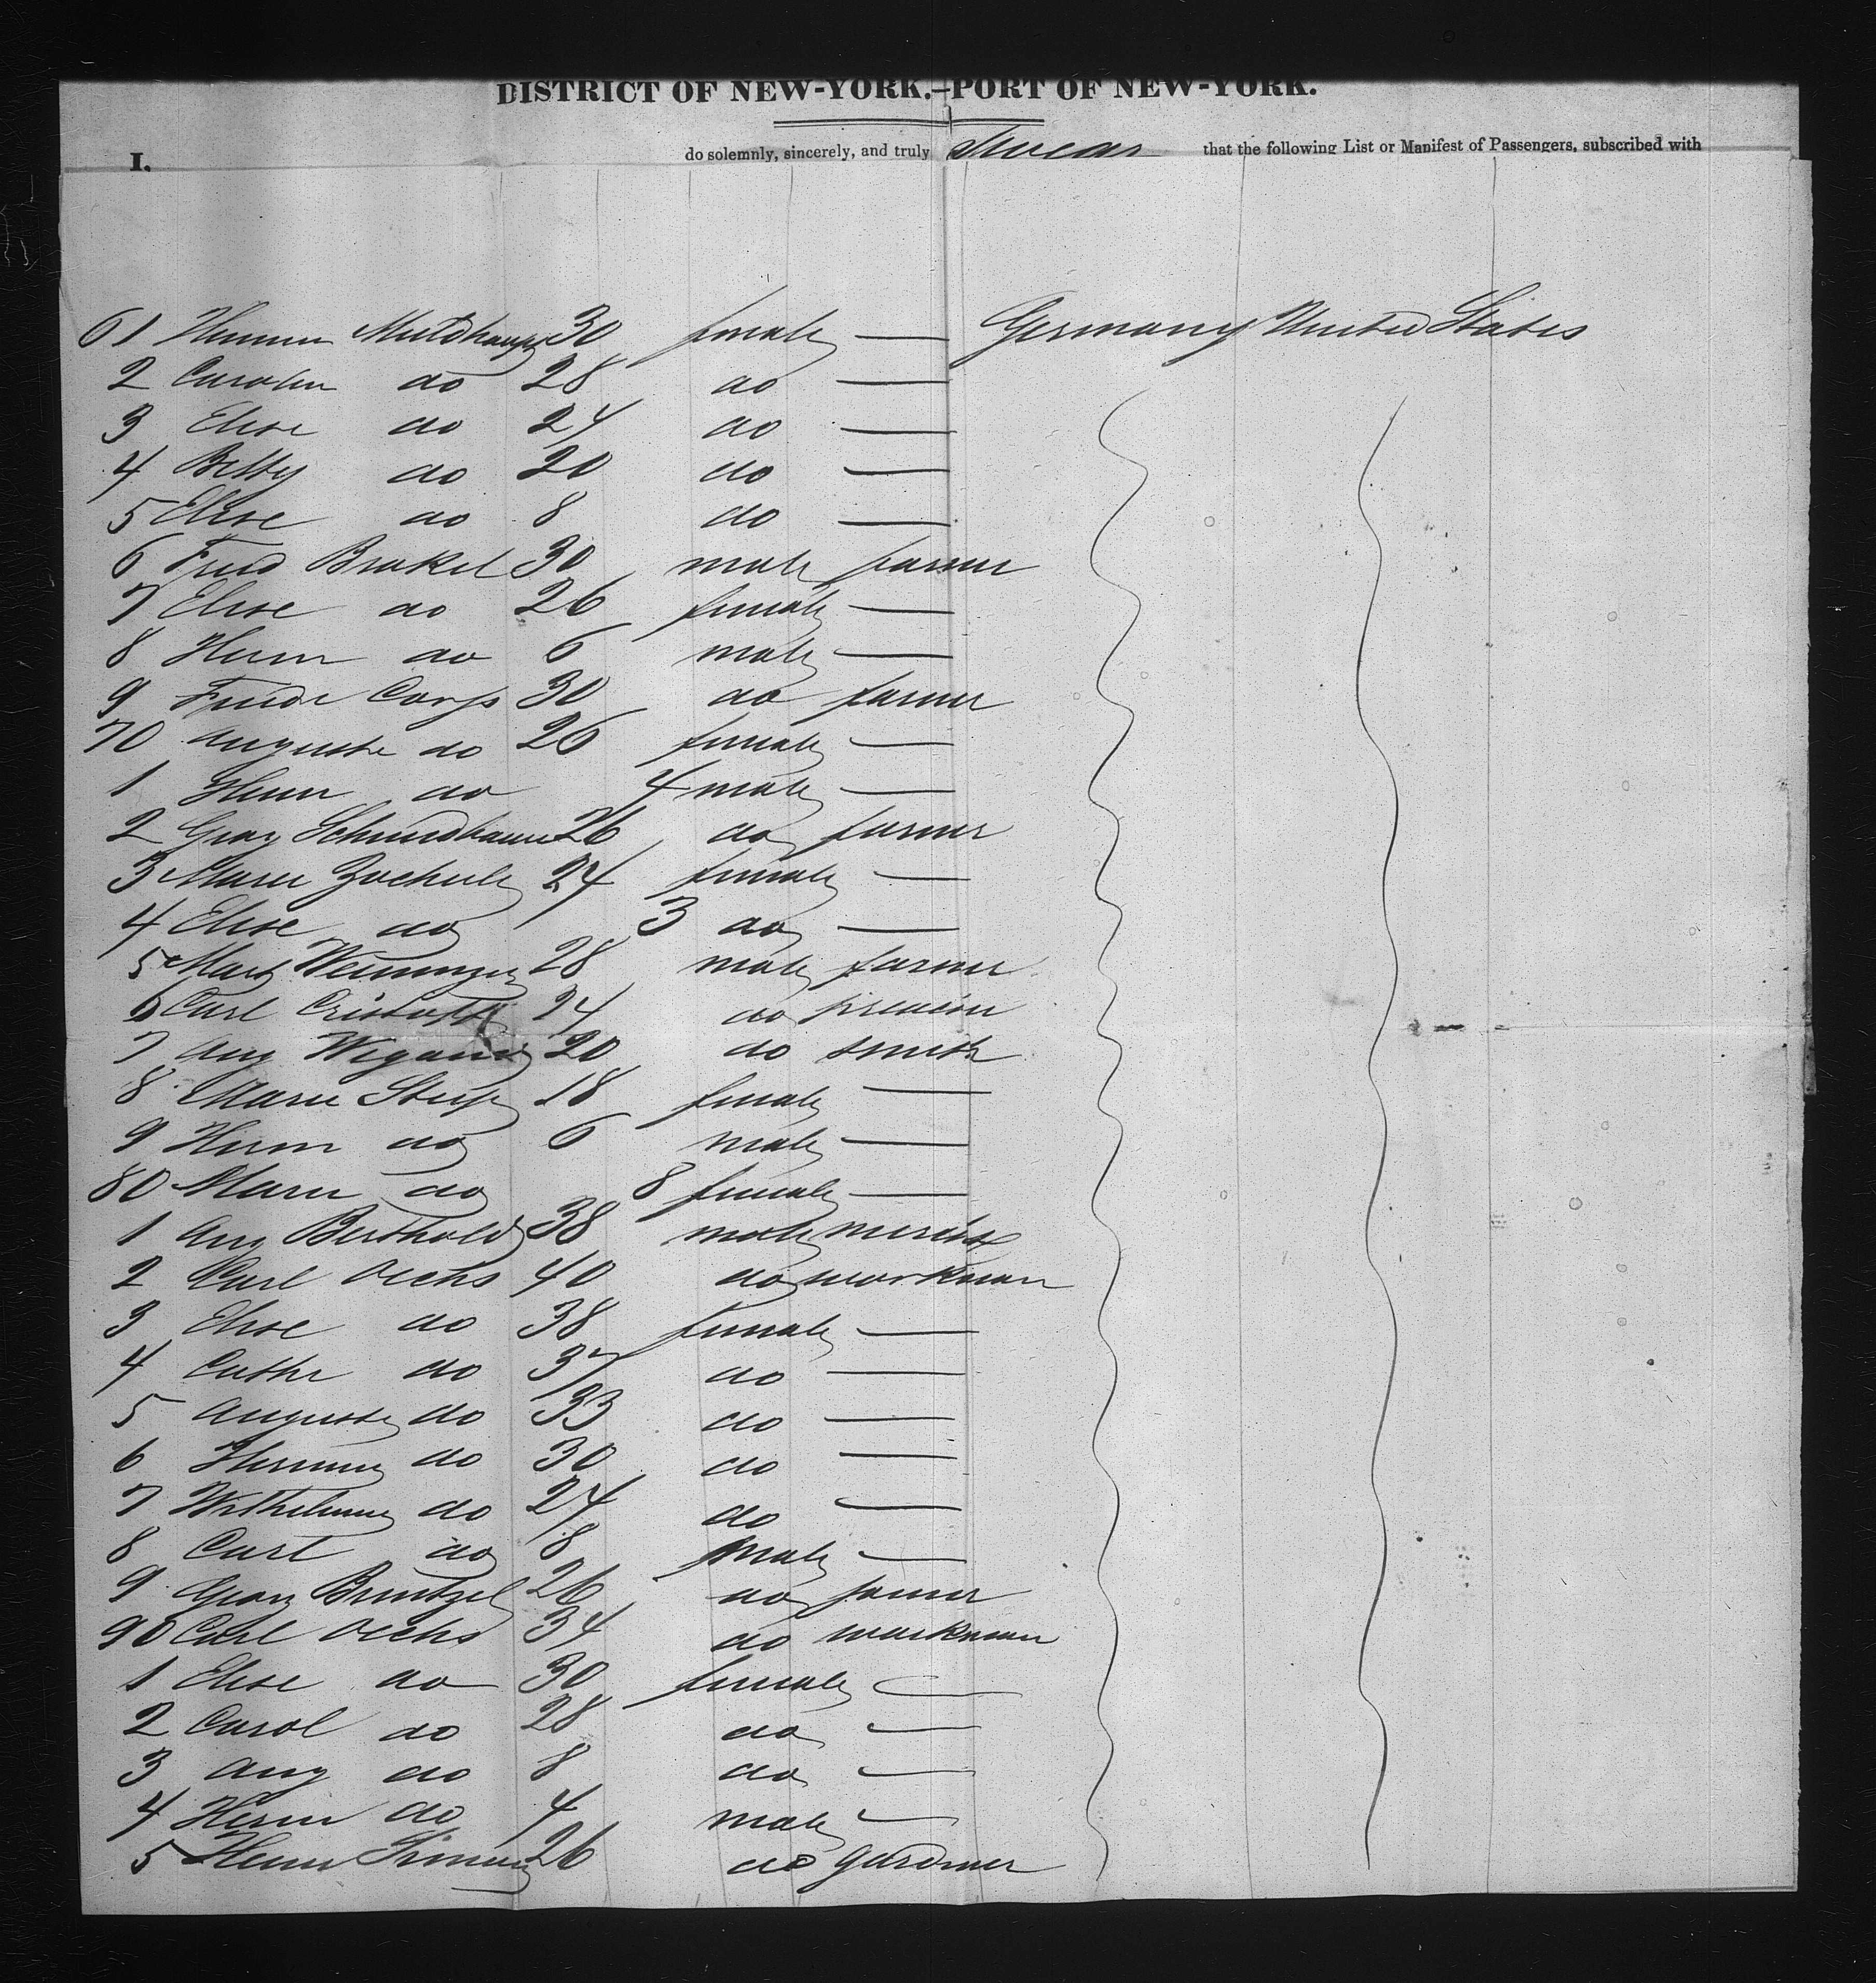 DISTRICT OF NEW-YORK.–PORT OF NEW-YORK.
I, do solemnly, sincerely, and truly Swear that the following List or Manifest of Passengers, subscribed with
61 30 female — Germany United States
2 Carolin do 28 do —
3 Elise do 24 do —
4 Betty do 20 do —
5 Elise do 8 do —
6 Fred Brakel 30 male farmer
7 Elise do 26 female —
8 Herm do 6 male —
9 Friedr Corps 30 do farmer
70 Auguste do 26 female —
1 Herm do 4 male —
2 Georg 26 do farmer
3 Marie 24 female —
4 Elise do 3 do —
5 28 male farmer
6 Carl 24 do
7 Aug Wigand 20 do smith
8 Marie 18 female —
9 Herm do 6 male —
80 Marie do 8 female —
1 Aug Berthold 38 male mercht
2 Carl Ochs 40 do workman
3 Elise do 38 female —
4 Cathr do 37 do —
5 Auguste do 33 do —
6 do 30 do —
7 Wilhelmine do 24 do —
8 Carl do 18 male —
9 Georg 26 do farmer
90 Carl Ochs 34 do workman
1 Elise do 30 female —
2 Carol do 28 do —
3 Aug do 8 do —
4 Herm do 4 male —
5 26 do gardner